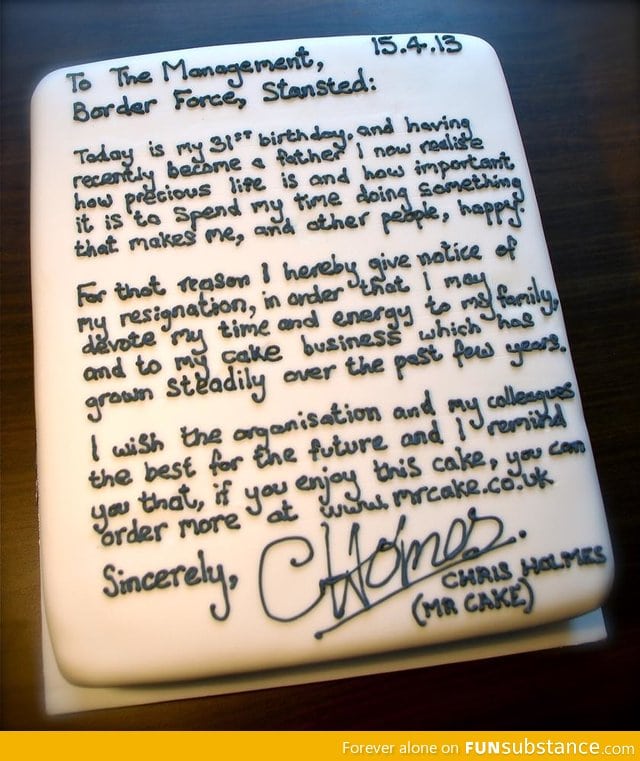 15.4.13
To The Management,
Border Force, Stansted:
Today is my 31st birthday, and having
recently become a father I now realise
how precious life is and how important
it is to spend my time doing something
that makes me, and other people, happy.
For that reason I hereby give notice of
my resignation, in order that I may
devote my time and energy to my family,
and to my cake business which has
grown steadily over the past few years.
I wish the organisation and my colleagues
the best for the future and I remind
you that, if you enjoy this cake, you can
order more at www.mrcake.co.uk
Sincerely,
CHolmes.
CHRIS HOLMES
(MR CAKE)
Forever alone on FUNsubstance.com